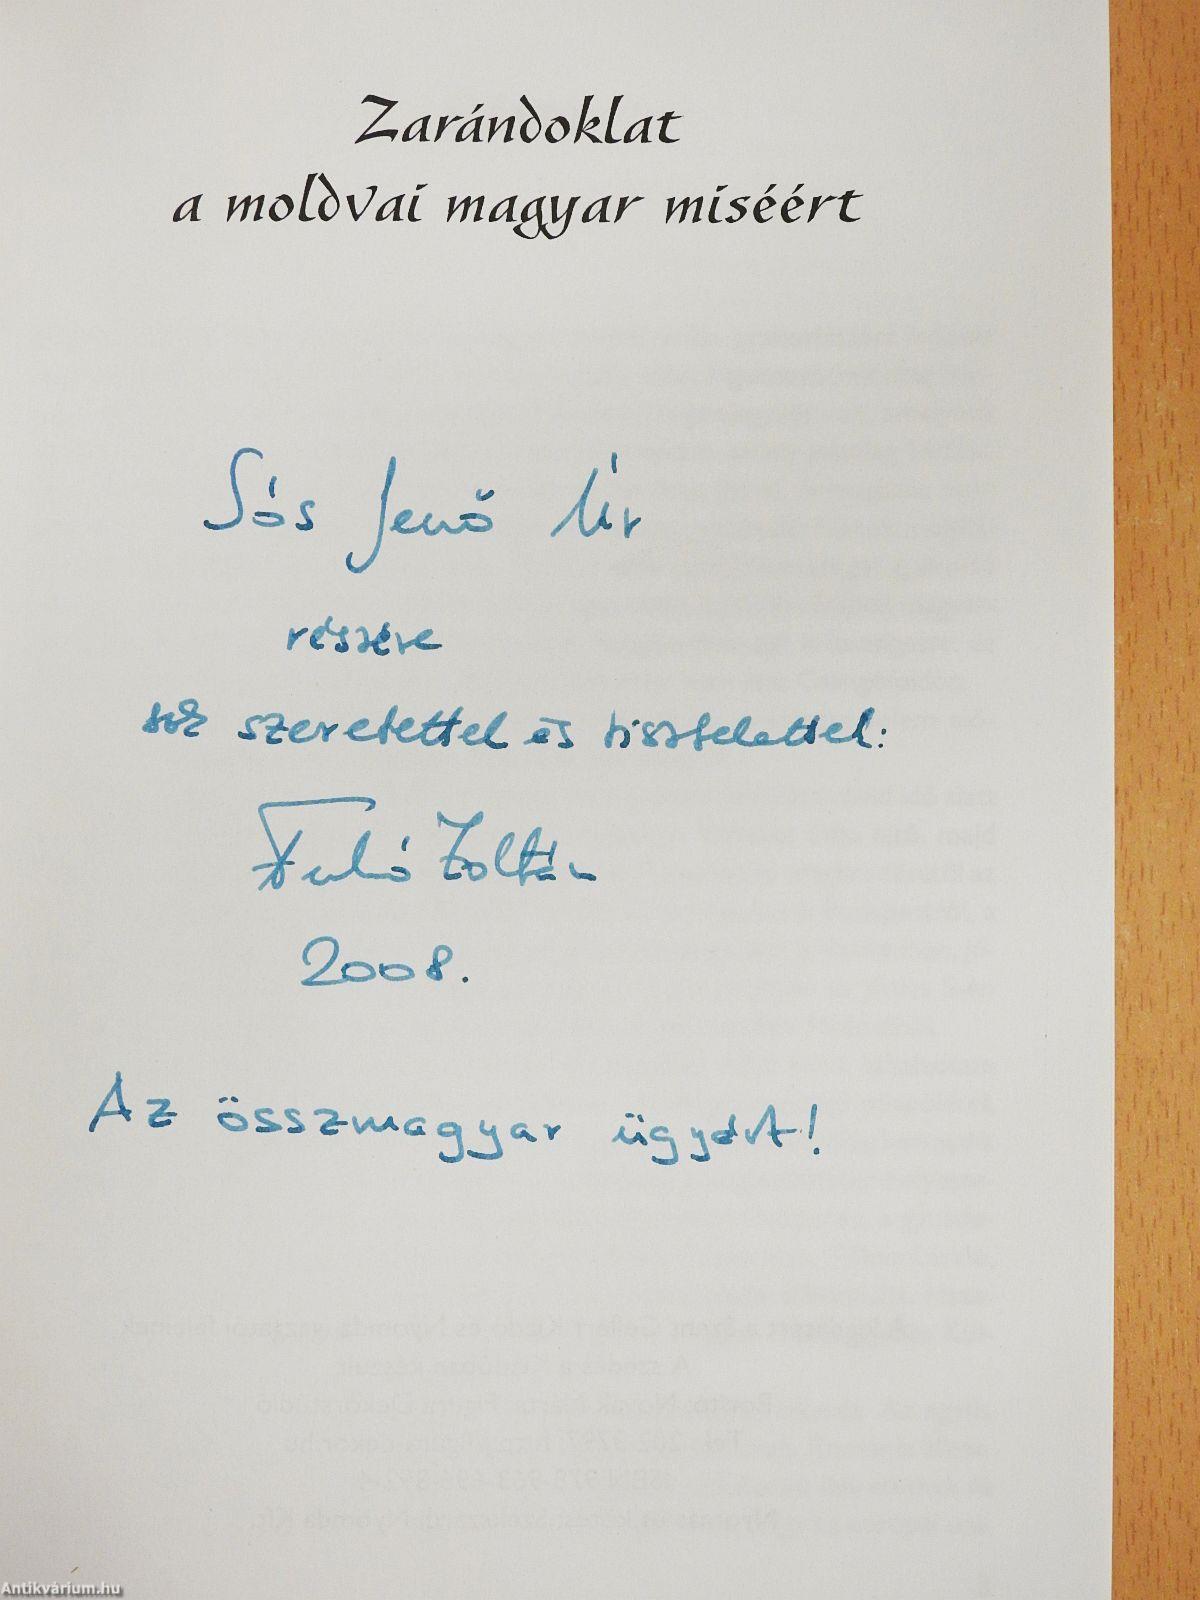 Zarándoklat
a moldvai magyar miséért
Sós Jenő Úr
részére
sok szeretettel és tisztelettel:
Zoltán
2008.
Az összmagyar ügyért!
Antikvárium.hu